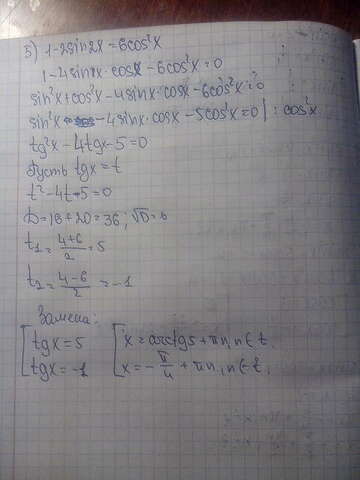 5) 1-2sin2x=6cos²x
1-4sinx·cosx-6cos²x=0
sin²x+cos²x-4sinx·cosx-6cos²x=0
sin²x-4sinx·cosx-5cos²x=0|:cos²x
tg²x-4tgx-5=0
Пусть tgx=t
t²-4t-5=0
D=16+20=36; √D=6
t₁=(4+6)/2=5
t₂=(4-6)/2=-1
Замена:
[tgx=5 [x=arctg5+πn, n∈t.
[tgx=-1 [x=-π/4+πn, n∈t.